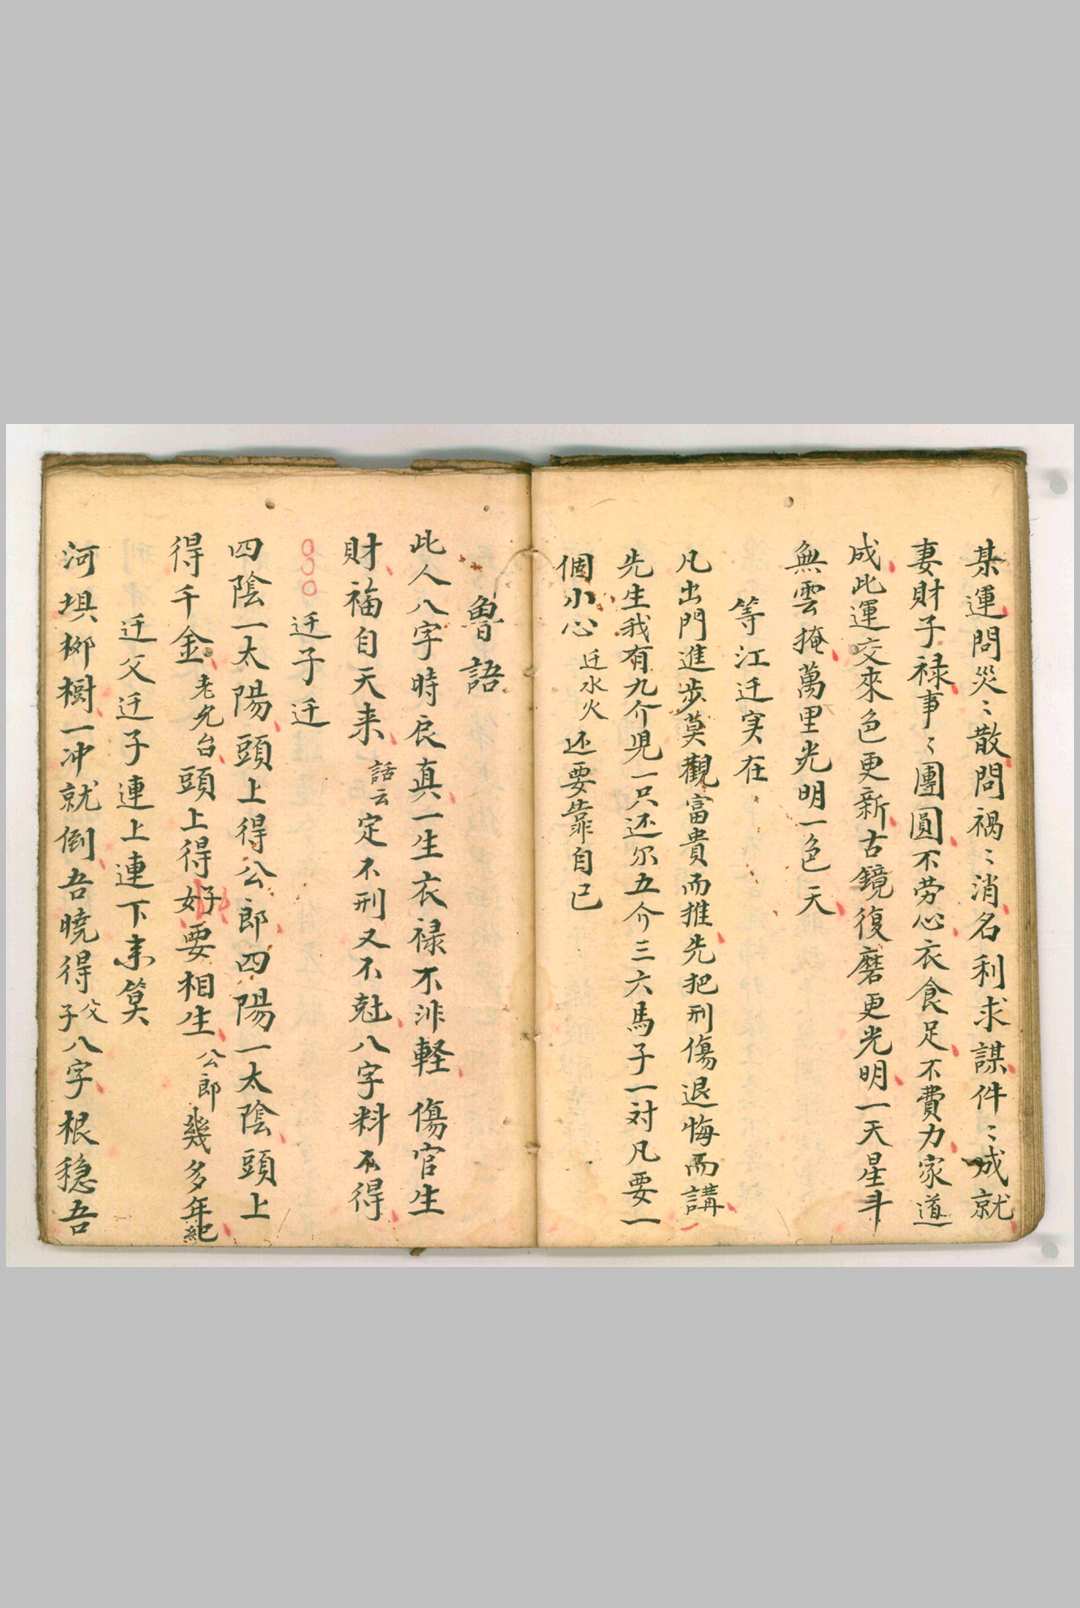 某運問災〻散問禍〻消名利求謀件〻成就
妻財子禄事〻團圓不劳心衣食足不費力家道
成此運交來色更新古鏡復磨更光明一天星斗
無雲掩萬里光明一色天
等江迁实在
凡出門進步莫觀富貴而推先把刑傷退悔而講
先生我有九个児一只还尔五个三六馬子一对凡要一
個小心迁水火还要靠自己
魯語
此人八字時辰真一生衣禄不非軽傷官生
財福自天来話云定不刑又不尅八字料不得
迁子迁
四陰一太陽頭上得公郎四陽一太陰頭上
得千金老允台頭上得好要相生公郎幾多年紀
迁父迁子連上連下来算
河埧柳樹一冲就倒吾曉得父子八字根穏吾